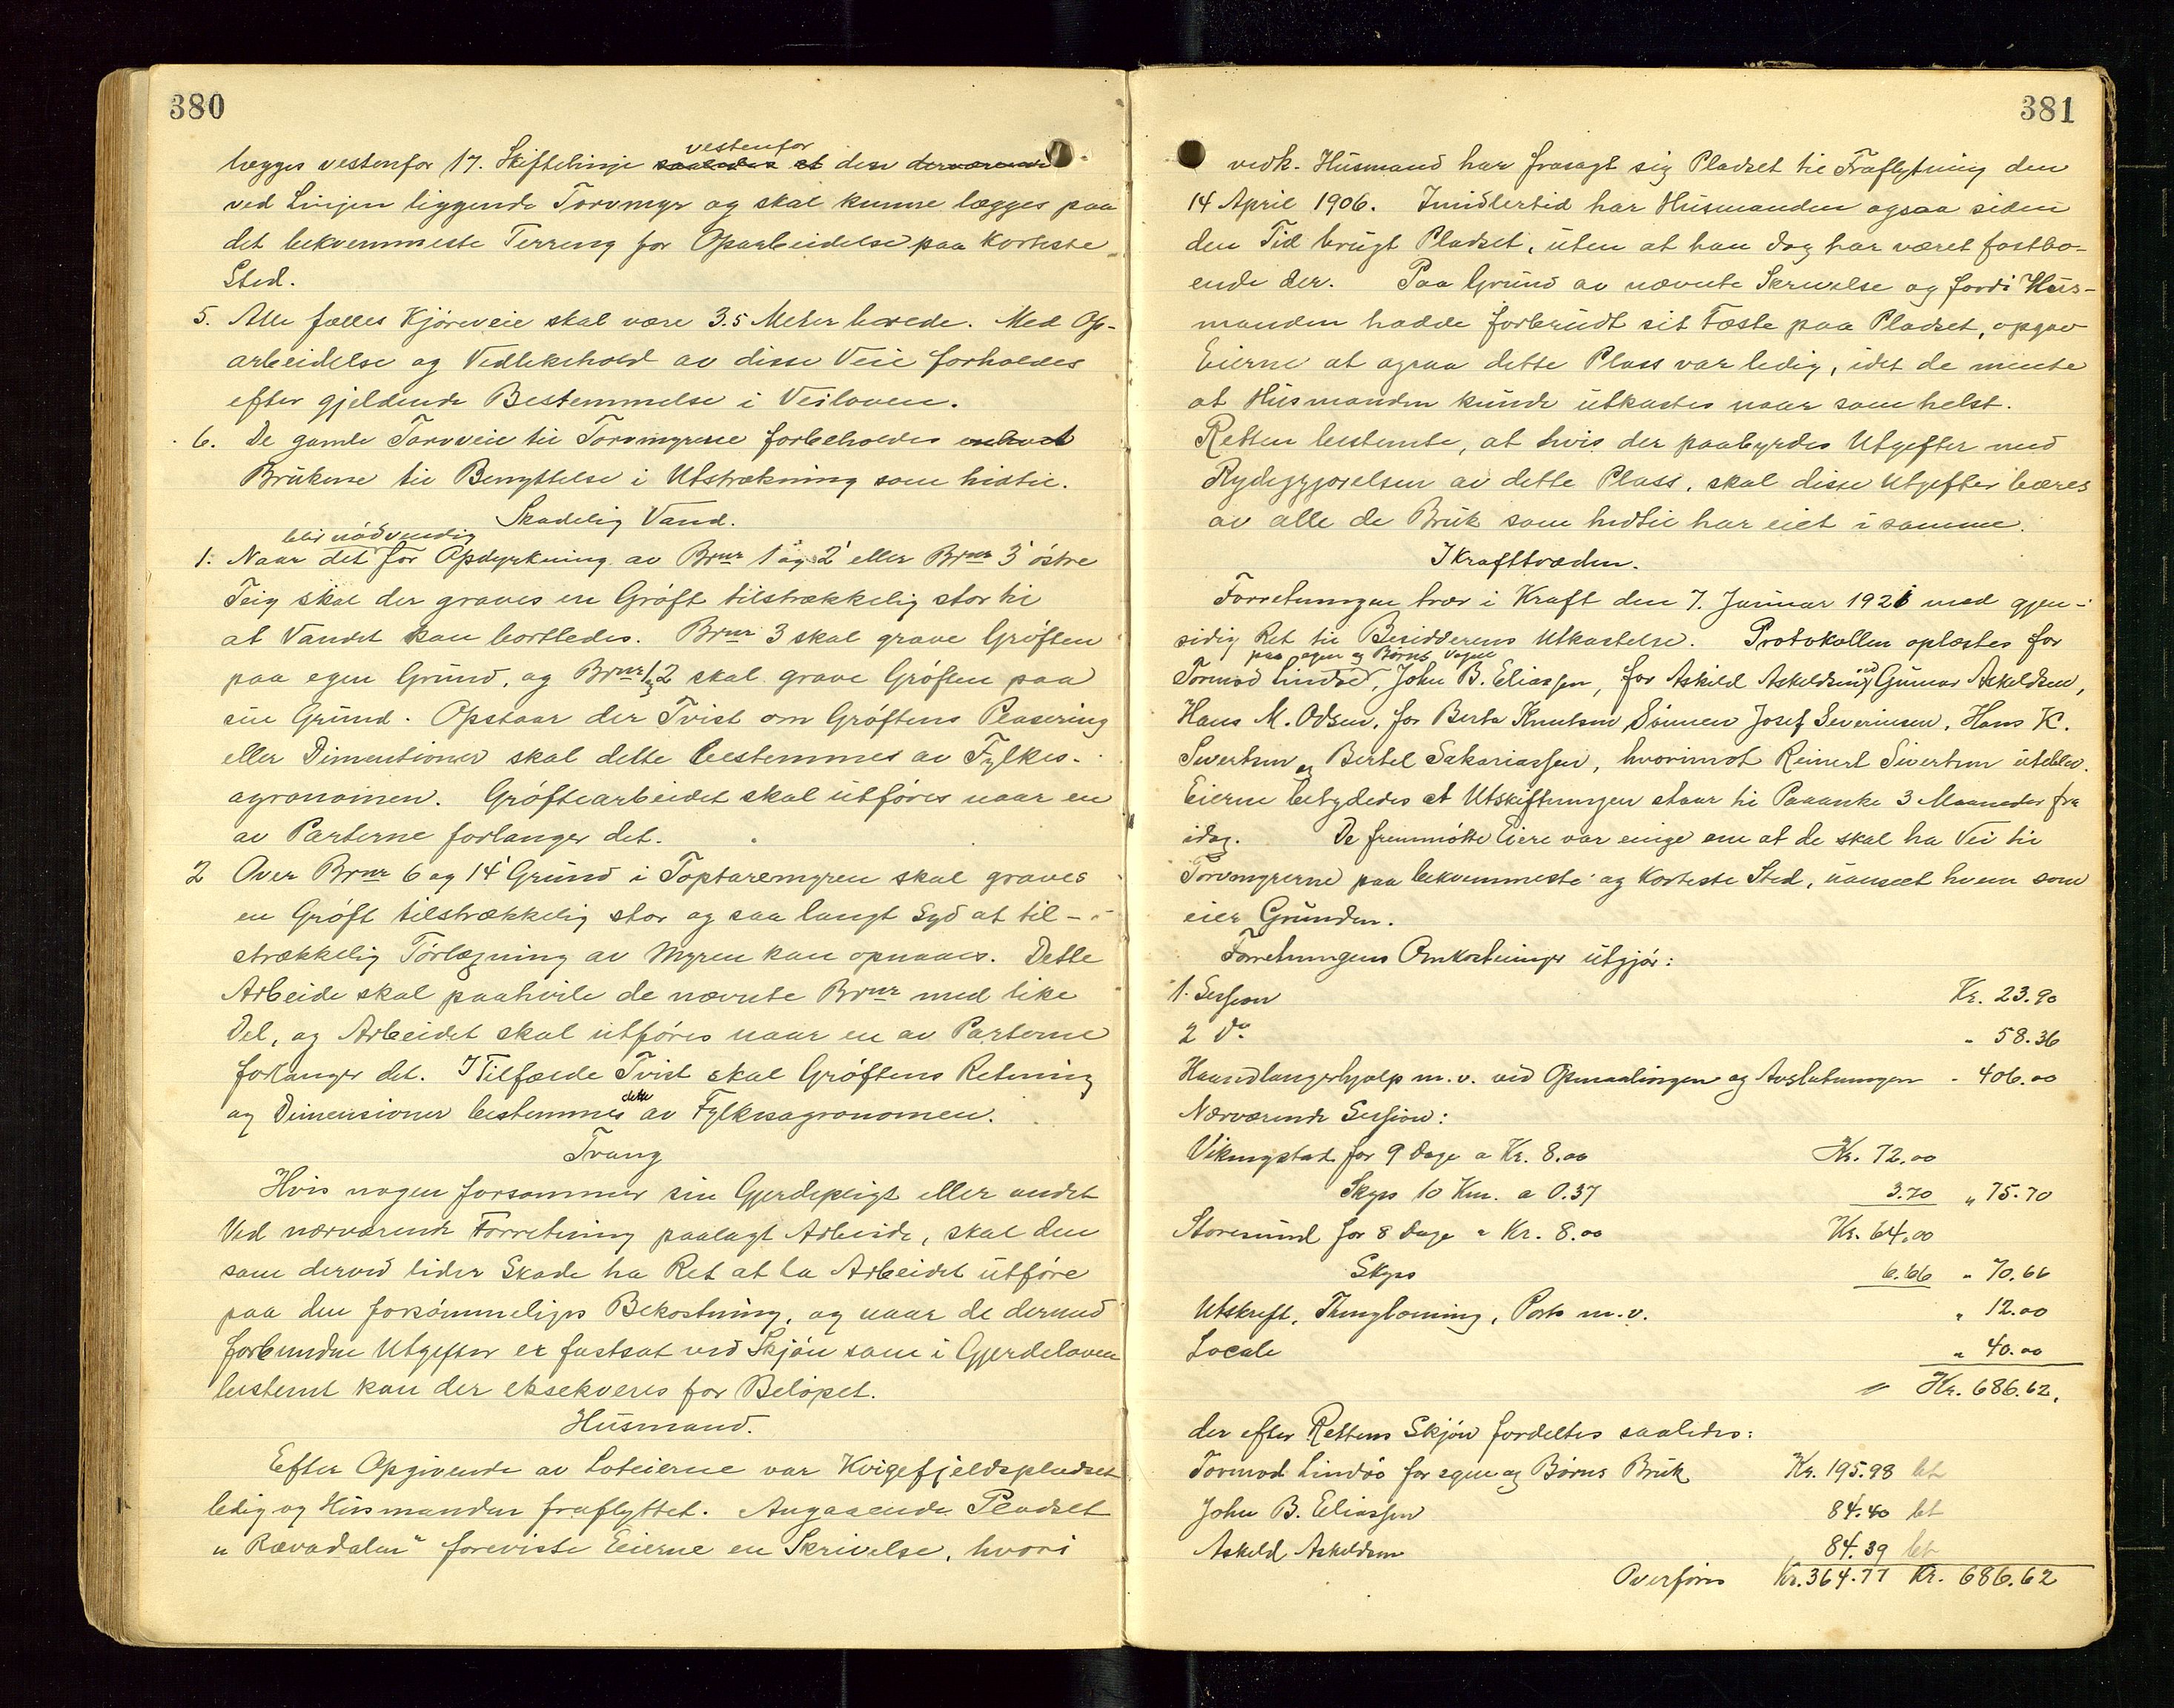 380
lægges vestenfor 17. Skiftelinje saaledes at vestenfor den derværende
ved Linjen liggende Torvmyr og skal kunne lægges paa
det bekvemmeste Terreng for Oparbeidelse paa korteste
Sted.
5. Alle fælles Kjøreveie skal være 3.5 Meter brede. Med Op-
arbeidelse og Vedlikehold av disse Veie forholdes
efter gjeldende Bestemmelse i Veiloven.
6. De gamle Torvveie til Torvmyrene forbeholdes enhvert
Brukene til Benyttelse i Utstrækning som hidtil.
Skadelig Vand.
blir nødvendig
1. Naar det for Opdyrkning av Brnr 1 og 2 eller Brnr 3 østre
Teig skal der graves en Grøft tilstrækkelig stor til
at Vandet kan bortledes. Brnr 3 skal grave Grøften
paa egen Grund, og Brnr 1 og 2 skal grave Grøften paa
sin Grund. Opstaar der Tvist om Grøftens Plasering
eller Dimentioner skal dette bestemmes av Fylkes-
agronomen. Grøftearbeidet skal utføres naar en
av Parterne forlanger det.
2 Over Brnr 6 og 14 Grund i Toptaremyren skal graves
en Grøft tilstrækkelig stor og saa langt Syd at til-
strækkelig Tørlægning av Myren kan opnaaes. Dette
Arbeide skal paahvile de nævnte Brnr med like
Del, og Arbeidet skal utføres naar en av Parterne
forlanger det. I Tilfælde Tvist skal Grøftens Retning
og Dimensioner bestemmes dette av Fylkesagronomen.
Tvang
Hvis nogen forsømmer sin Gjerdepligt eller andet
Ved nærværende Forretning paalagt Arbeide, skal den
som derved lider Skade ha Ret at la Arbeidet utføre
paa den forsømmeliges Bekostning, og naar de dermed
forbundne Utgifter er fastsat ved Skjøn som i Gjerdeloven
bestemt kan der eksekveres for Beløpet.
Husmand.
Efter Opgivende av Loteierne var Kvigefjeldspladset
ledig og Husmanden fraflyttet. Angaaende Pladset
"Rævadalen" foreviste Eierne en Skrivelse, hvori
381
vedk. Husmand har frasagt sig Pladset til Fraflytning den
14 April 1906. Imidlertid har Husmanden ogsaa siden
den Tid brugt Pladset, uten at han dog har været fastbo-
ende der. Paa Grund av nævnte Skrivelse og fordi Hus-
manden hadde forbrudt sit Fæste paa Pladset, opgav
Eierne at ogsaa dette Plass var ledig, idet de mente
at Husmanden kunde utkastes naar som helst.
Retten bestemte, at hvis der paabyrdes Utgifter med
Rydiggjørelsen av dette Plass, skal disse Utgifter bæres
av alle de Bruk som hidtil har eiet i samme.
Ikrafttræden.
Forretningen træ i Kraft den 7. Januar 1921 med gjen-
sidig Ret til Besidderens Utkastelse. Protokollen oplæstes for
paa egne og Børns Vegne
Tormod Lindøe, John B. Eliassen, for Askild Askeldsen ved Gunnar Askeldsen,
Hans M. Odsen, for Berta Knutsen Sønnen Josef Severinsen, Hans K.
Sivertsen og Bertel Sakariassen, hvorimot Reinert Sivertsen utebblev.
Eierne betydedes at Utskiftningen staar til Paaanke 3 Maaneder fra
idag. De fremmøtte Eiere var enige om at de skal ha Vei til
Torvmyrerne paa bekvemmeste og korteste Sted, uanseet hvem som
eier Grunden.
Forretningens Omkostninger utgjør:
1. Session Kr. 23.90
2 do " 58.36
Haandlangerhjælp m.v. ved Opmaalingen og Avslutningen " 406.00
Nærværende Session:
Vikingstad for 9 Dage a Kr. 8.00 Kr. 72.00
Skyss 10 Km. a 0.37 3.70 " 75.70
Storesund for 8 Dage a Kr. 8.00 Kr. 64.00
Skyss 6.66 " 70.66
Utskrift, Thinglæsning, Porto m.v. " 12.00
Locale " 40.00
Kr. 686.62.
der efter Rettens Skjøn fordeltes saaledes:
Tormod Lindøe for egne og Børns Bruk Kr. 195.98 bet
John B. Eliassen 84.40 bet
Askeld Askeldsen 84.39 bet
Overføres Kr. 364.77 Kr. 686.62